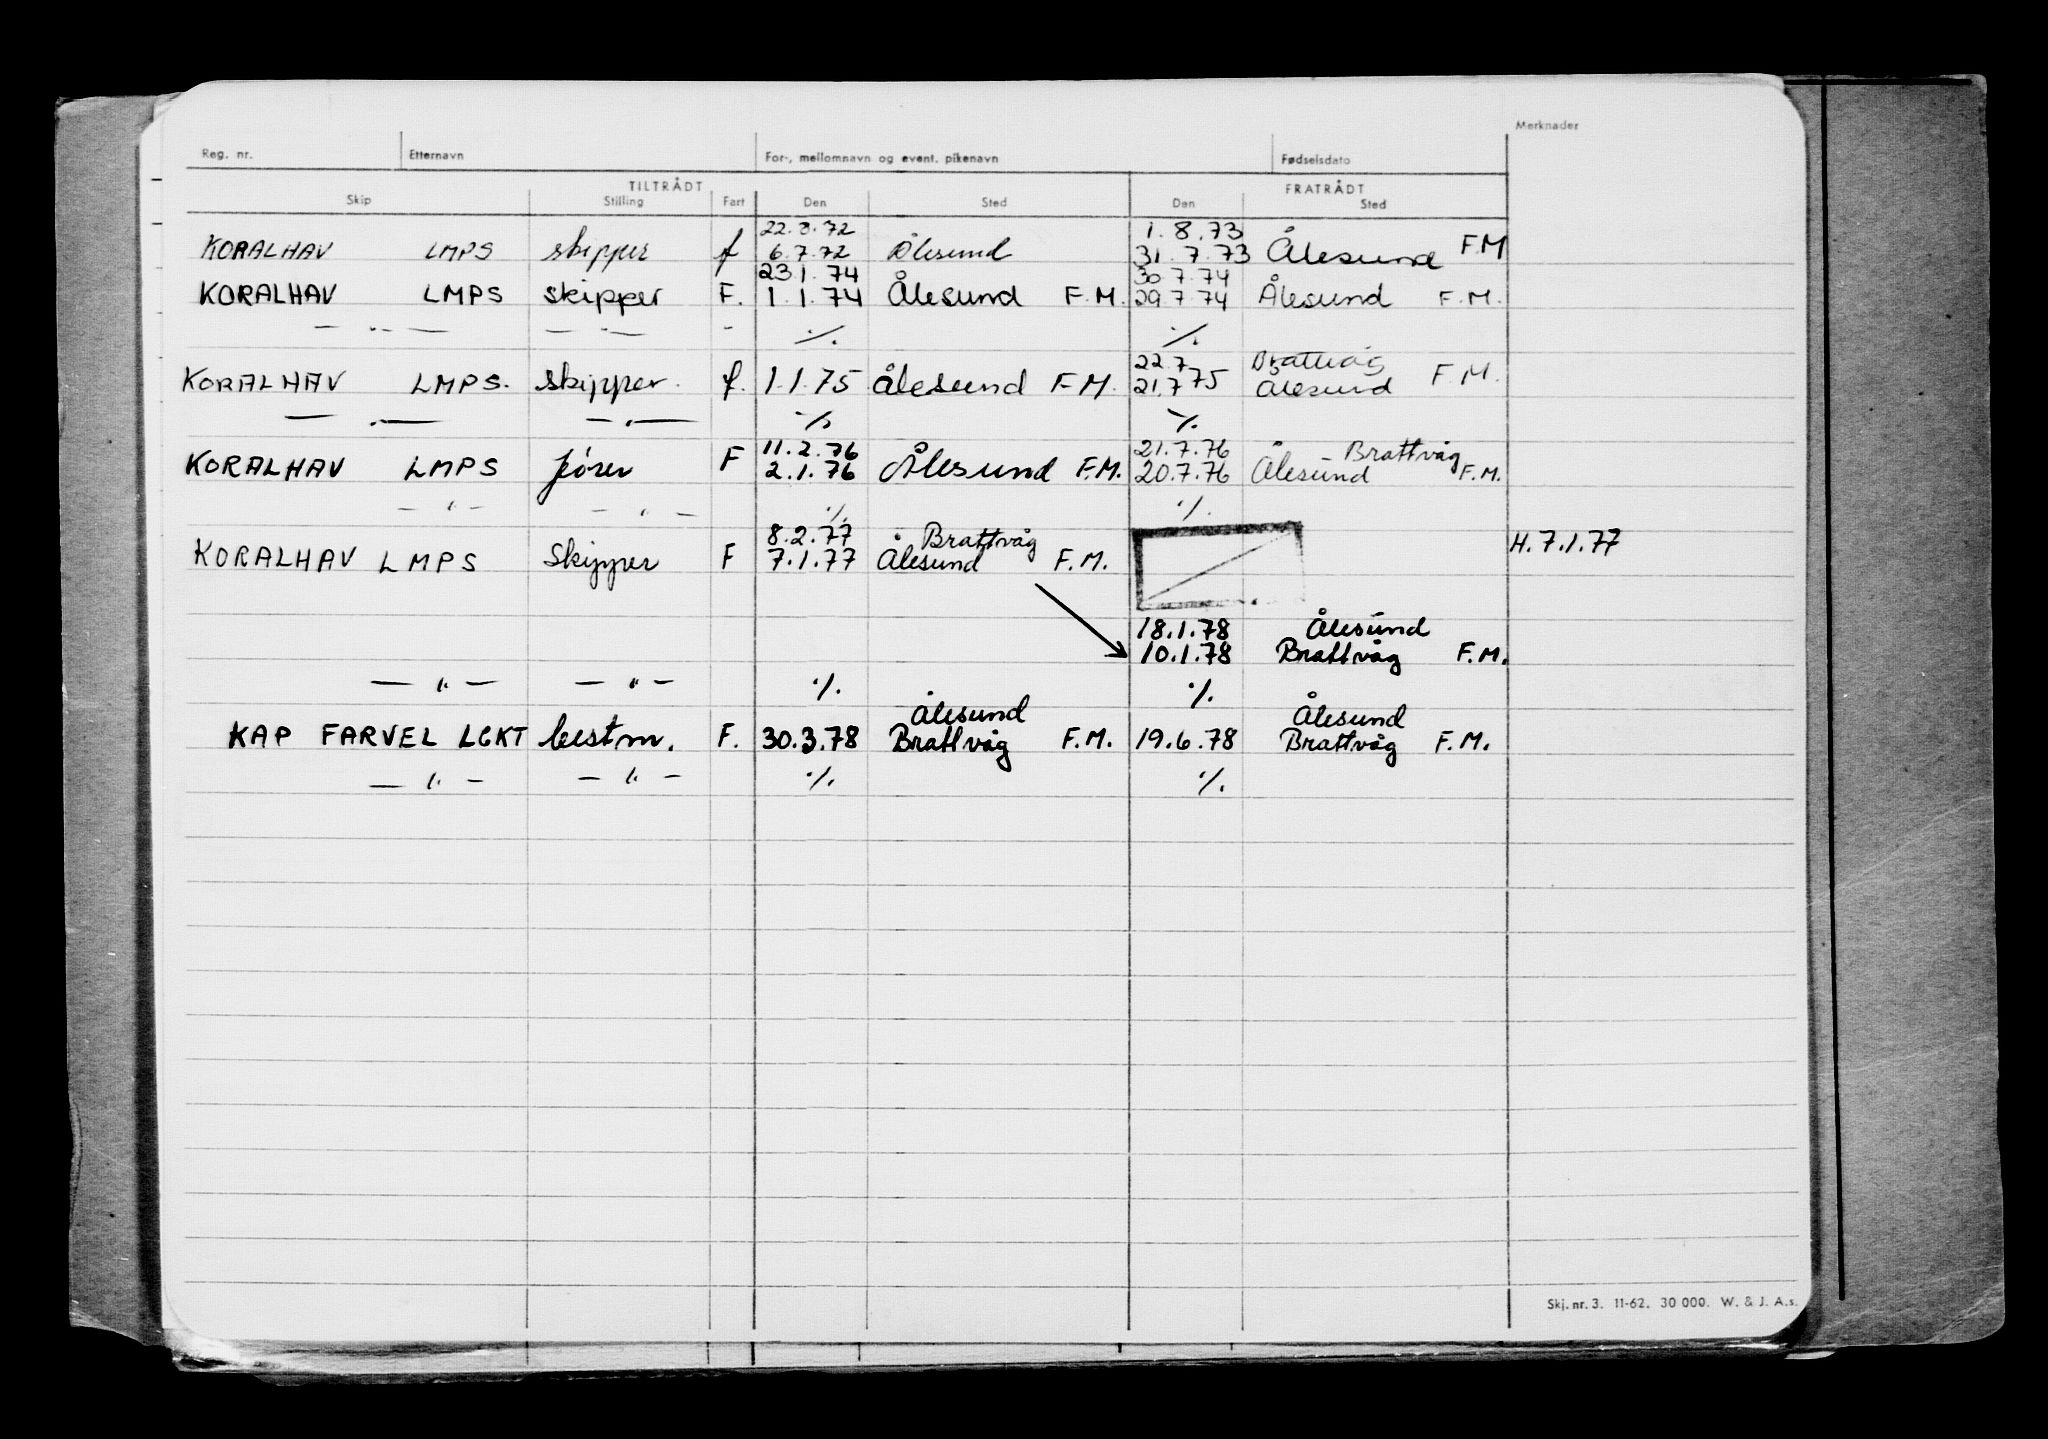 Merknader
Reg. nr. Etternavn For-, mellomnavn og event. pikenavn Fødselsdato
TILTRÅDT FRATRÅDT
Skip Stilling Fart Den Sted Den Sted
22.3.72 1.8.73
KORALHAV LMPS skipper f 6.7.72 Ålesund 31.7.73 Ålesund F.M
23.1.74 30.7.74
KORALHAV LMPS skipper F. 1.1.74 Ålesund F.M. 29.7.74 Ålesund F.M.
— " — — " — - ·/. ·/.
22.7 Brattvåg
KORALHAV LMPS. skipper. f. 1.1.75 Ålesund F.M. 21.7.75 Ålesund F.M.
— " — — " — ·/. ·/.
11.2.76 21.7.76 Brattvåg
KORALHAV LMPS fører F 2.1.76 Ålesund F.M. 20.7.76 Ålesund F.M.
— " — — " — ·/. ·/.
8.2.77 Brattvåg H. 7.1.77
KORALHAV LMPS Skipper F 7.1.77 Ålesund F.M.
18.1.78 Ålesund
10.1.78 Brattvåg F.M.
— " — — " — ·/. ·/.
Ålesund Ålesund
KAP FARVEL LGKT bestm. F. 30.3.78 Brattvåg F.M. 19.6.78 Brattvåg F.M.
— " — — " — ·/. ·/.
Skj. nr. 3. 11-62. 30 000. W. & J. A.s.